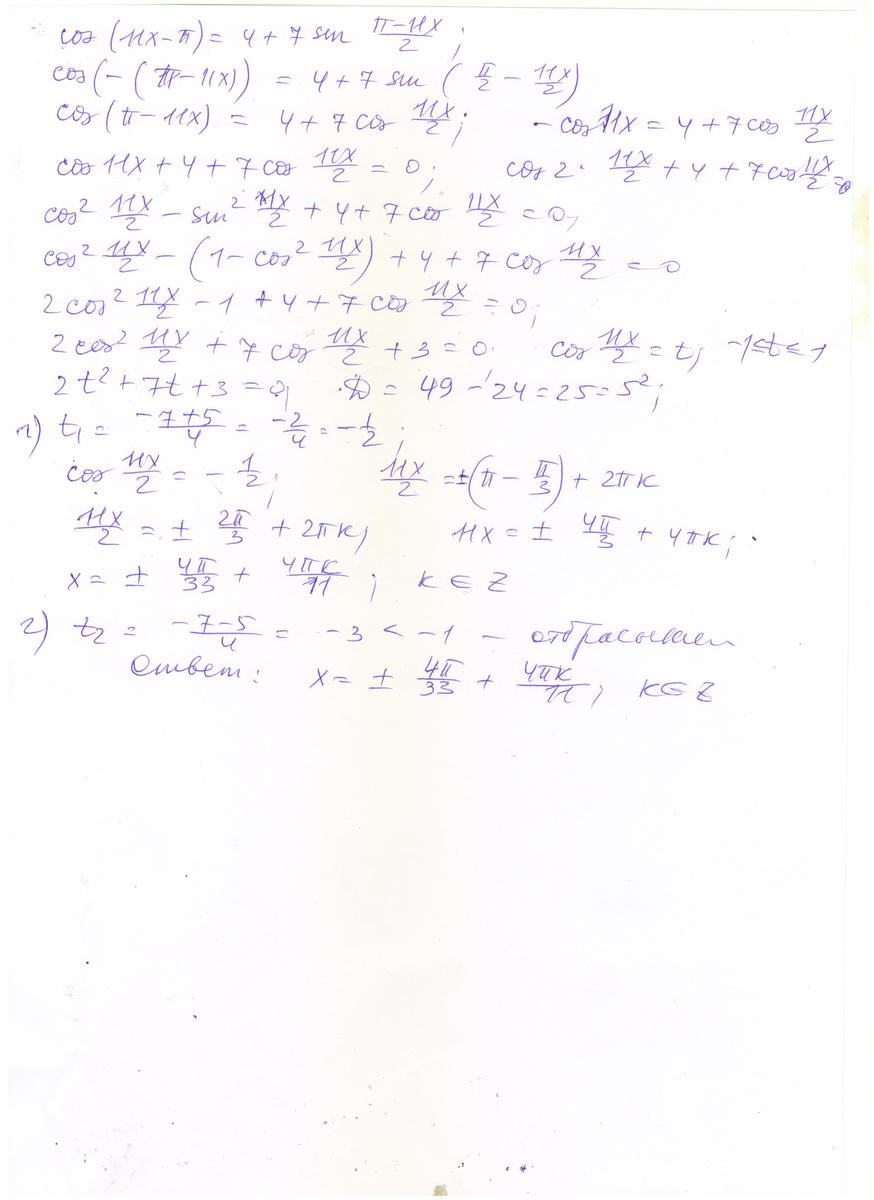 cos (11x-π) = 4 + 7 sin (π-11x)/2 ;
cos(-(π-11x)) = 4 + 7 sin (π/2 - 11x/2)
cos (π-11x) = 4 + 7 cos 11x/2 ; - cos 11x = 4 + 7 cos 11x/2
cos 11x + 4 + 7 cos 11x/2 = 0 ; cos 2 · 11x/2 + 4 + 7 cos 11x/2 = 0
cos² 11x/2 - sin² 11x/2 + 4 + 7 cos 11x/2 = 0,
cos² 11x/2 - (1 - cos² 11x/2) + 4 + 7 cos 11x/2 = 0
2 cos² 11x/2 - 1 + 4 + 7 cos 11x/2 = 0 ;
2 cos² 11x/2 + 7 cos 11x/2 + 3 = 0 cos 11x/2 = t, -1≤t≤1
2t² + 7t + 3 = 0, D = 49 - 24 = 25 = 5² ;
1) t₁ = (-7+5)/4 = -2/4 = -1/2 ;
cos 11x/2 = - 1/2 ; 11x/2 = ±(π - π/3) + 2πк
11x/2 = ± 2π/3 + 2πк, 11x = ± 4π/3 + 4πк ;
x = ± 4π/33 + 4πк/11 ; к ∈ Z
2) t₂ = (-7-5)/4 = -3 < -1 - отбрасываем
Ответ: x = ± 4π/33 + 4πк/11, к∈Z